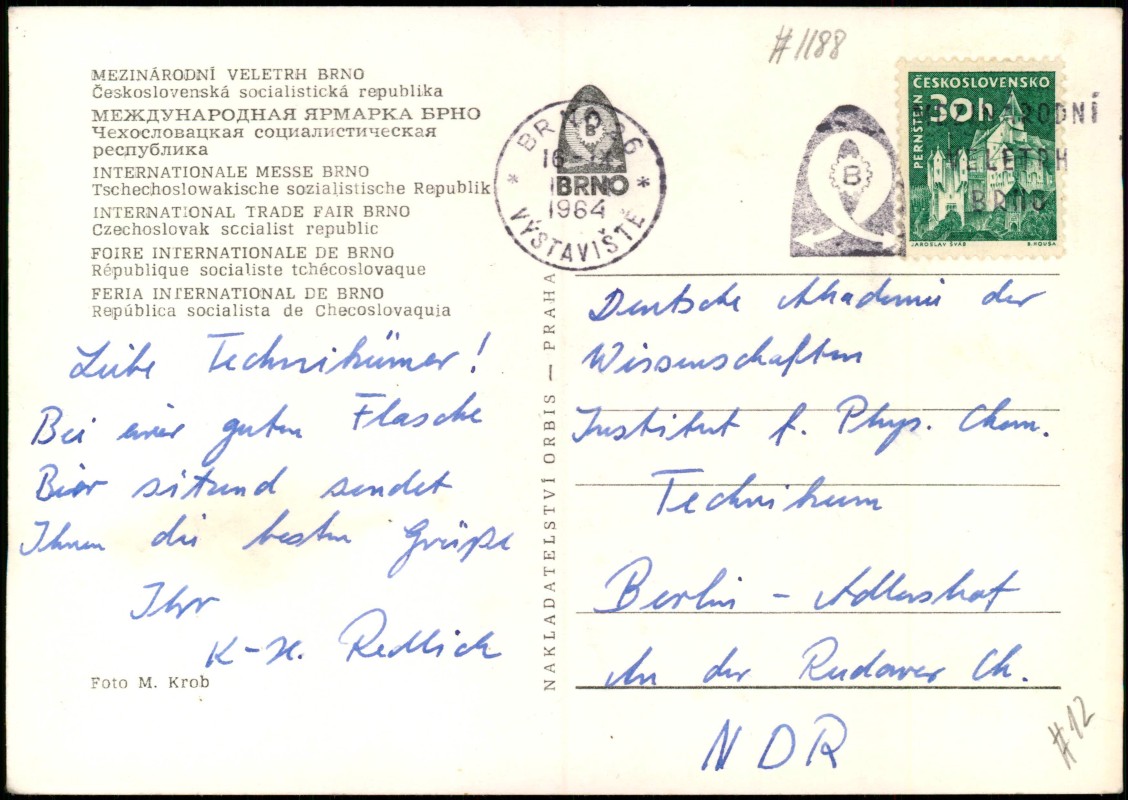 #1188
MEZINÁRODNÍ VELETRH BRNO
Československá socialistická republika
МЕЖДУНАРОДНАЯ ЯРМАРКА БРНО
Чехословацкая социалистическая
республика
INTERNATIONALE MESSE BRNO
Tschechoslowakische sozialistische Republik
INTERNATIONAL TRADE FAIR BRNO
Czechoslovak sccialist republic
FOIRE INTERNATIONALE DE BRNO
République socialiste tchécoslovaque
FERIA INTERNATIONAL DE BRNO
República socialista de Checoslovaquia
Liebe Technikümer!
Bei einer guten Flasche
Bier sitzend sendet
Ihnen die besten Grüße
Ihr
K-H. Redlich
Foto M. Krob
NAKLADATELSTVÍ ORBIS — PRAHA
BRNO 26
B
BRNO
1964
* VÝSTAVIŠTĚ *
B
MEZINÁRODNÍ
VELETRH
BRNO
ČESKOSLOVENSKO
30h
PERNŠTEJN
JAROSLAV ŠVÁB
Deutsche Akademie der
Wissenschaften
Institut f. Phys. Chem.
Technikum
Berlin - Adlershof
An der Rudower Ch.
NDR
#12